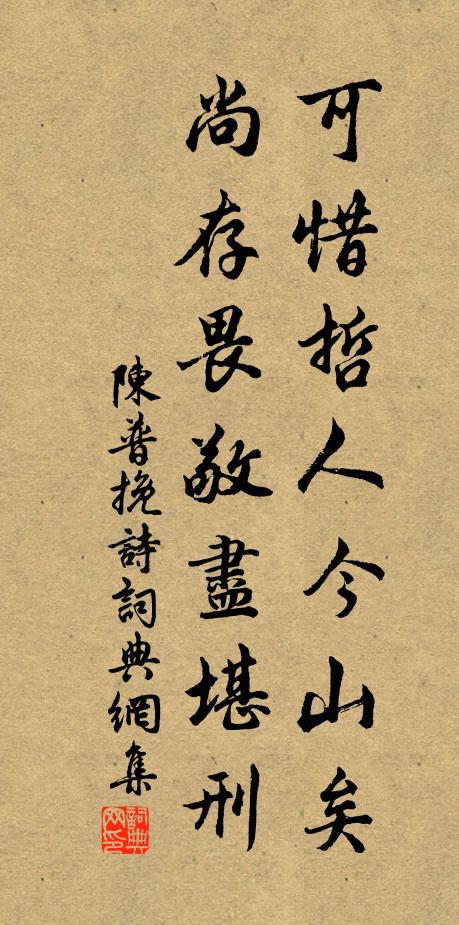 可惜哲人今山矣
尚存畏敬盡堪刑
陳普挽詩詞典網集
詞典網印